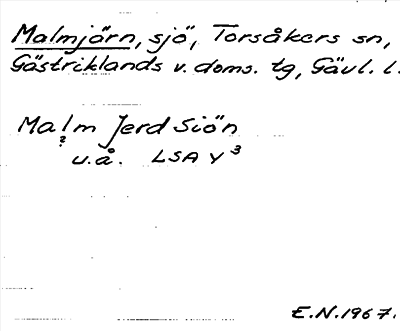 Malmjärn, sjö, Torsåkers sn,
Gästriklands v. doms. tg, Gävl. l.
Malm Jerd Siön
?
u.å. LSA Y 3
E.N. 1967.